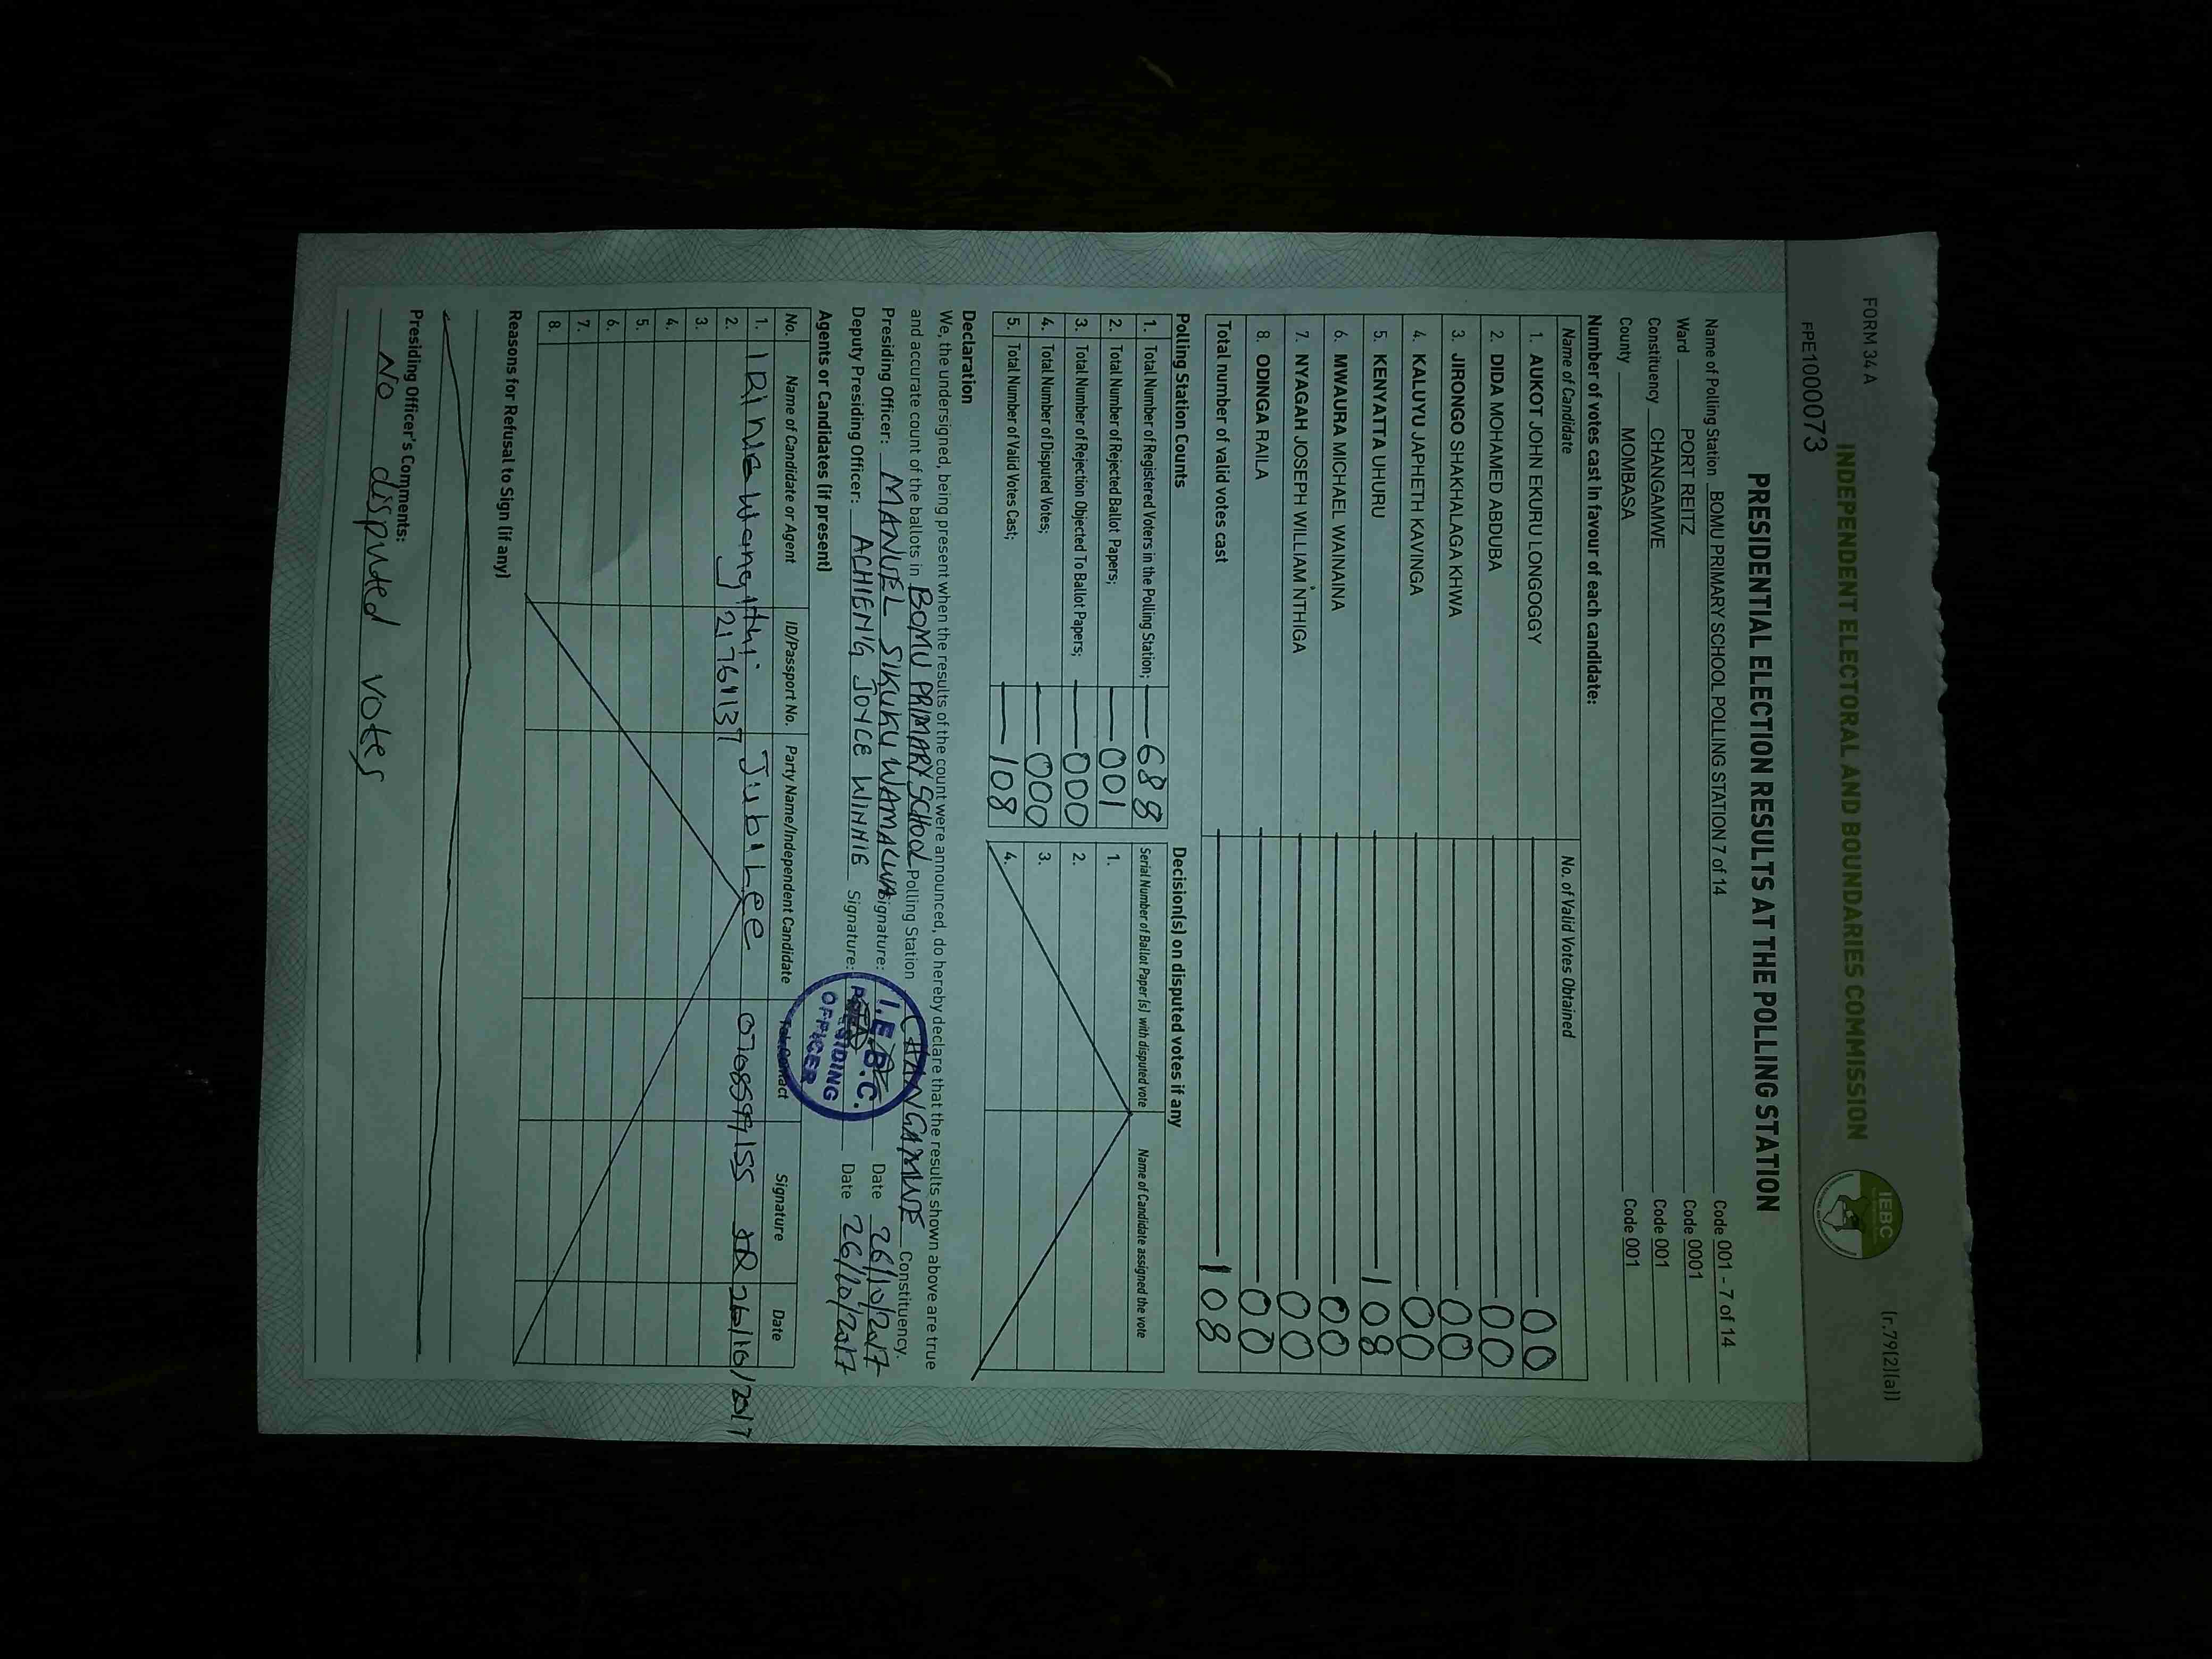 FORM 34 A
(r.79(2)(a))
INDEPENDENT ELECTORAL AND BOUNDARIES COMMISSION
IEBC
FPE1000073
PRESIDENTIAL ELECTION RESULTS AT THE POLLING STATION
Name of Polling Station BOMU PRIMARY SCHOOL POLLING STATION 7 of 14 Code 001 - 7 of 14
Ward PORT REITZ Code 0001
Constituency CHANGAMWE Code 001
County MOMBASA Code 001
Number of votes cast in favour of each candidate:
Name of Candidate No. of Valid Votes Obtained
1. AUKOT JOHN EKURU LONGOGGY 00
2. DIDA MOHAMED ABDUBA 00
3. JIRONGO SHAKHALAGA KHWA 00
4. KALUYU JAPHETH KAVINGA 00
5. KENYATTA UHURU 108
6. MWAURA MICHAEL WAINAINA 00
7. NYAGAH JOSEPH WILLIAM NTHIGA 00
8. ODINGA RAILA 00
Total number of valid votes cast 108
Polling Station Counts
1. Total Number of Registered Voters in the Polling Station; 688
2. Total Number of Rejected Ballot Papers; 001
3. Total Number of Rejection Objected To Ballot Papers; 000
4. Total Number of Disputed Votes; 000
5. Total Number of Valid Votes Cast; 108
Decision(s) on disputed votes if any
Serial Number of Ballot Paper (s) with disputed vote Name of Candidate assigned the vote
1.
2.
3.
4.
Declaration
We, the undersigned, being present when the results of the count were announced, do hereby declare that the results shown above are true
and accurate count of the ballots in BOMU PRIMARY SCHOOL Polling Station CHANGAMWE Constituency.
Presiding Officer: MANUEL SIKUKU WAMALWA Signature: Date 26/10/2017
Deputy Presiding Officer: ACHIENG JOYCE WINNIE Signature: Date 26/10/2017
I.E.B.C.
PRESIDING
OFFICER
Agents or Candidates (if present)
No. Name of Candidate or Agent ID/Passport No. Party Name/Independent Candidate Tel. Contact Signature Date
1. IRINE Wangithi 21761137 JubiLee 0708599155 26/10/2017
2.
3.
4.
5.
6.
7.
8.
Reasons for Refusal to Sign (if any)
Presiding Officer's Comments:
No disputed votes